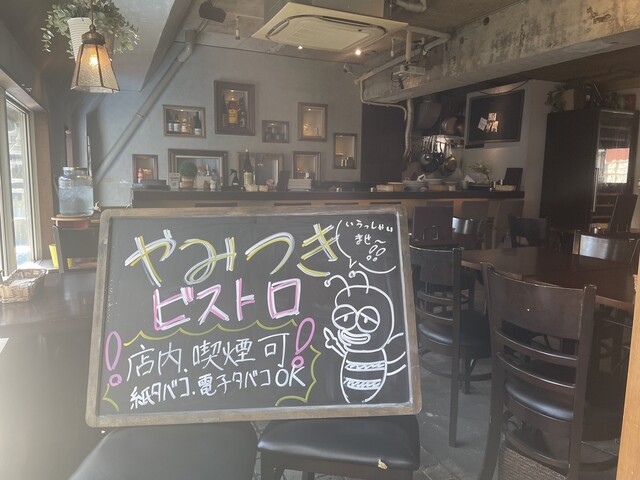 やみつき
ビストロ
いらっしゃい
ませ〜
店内.喫煙可
紙タバコ.電子タバコOK